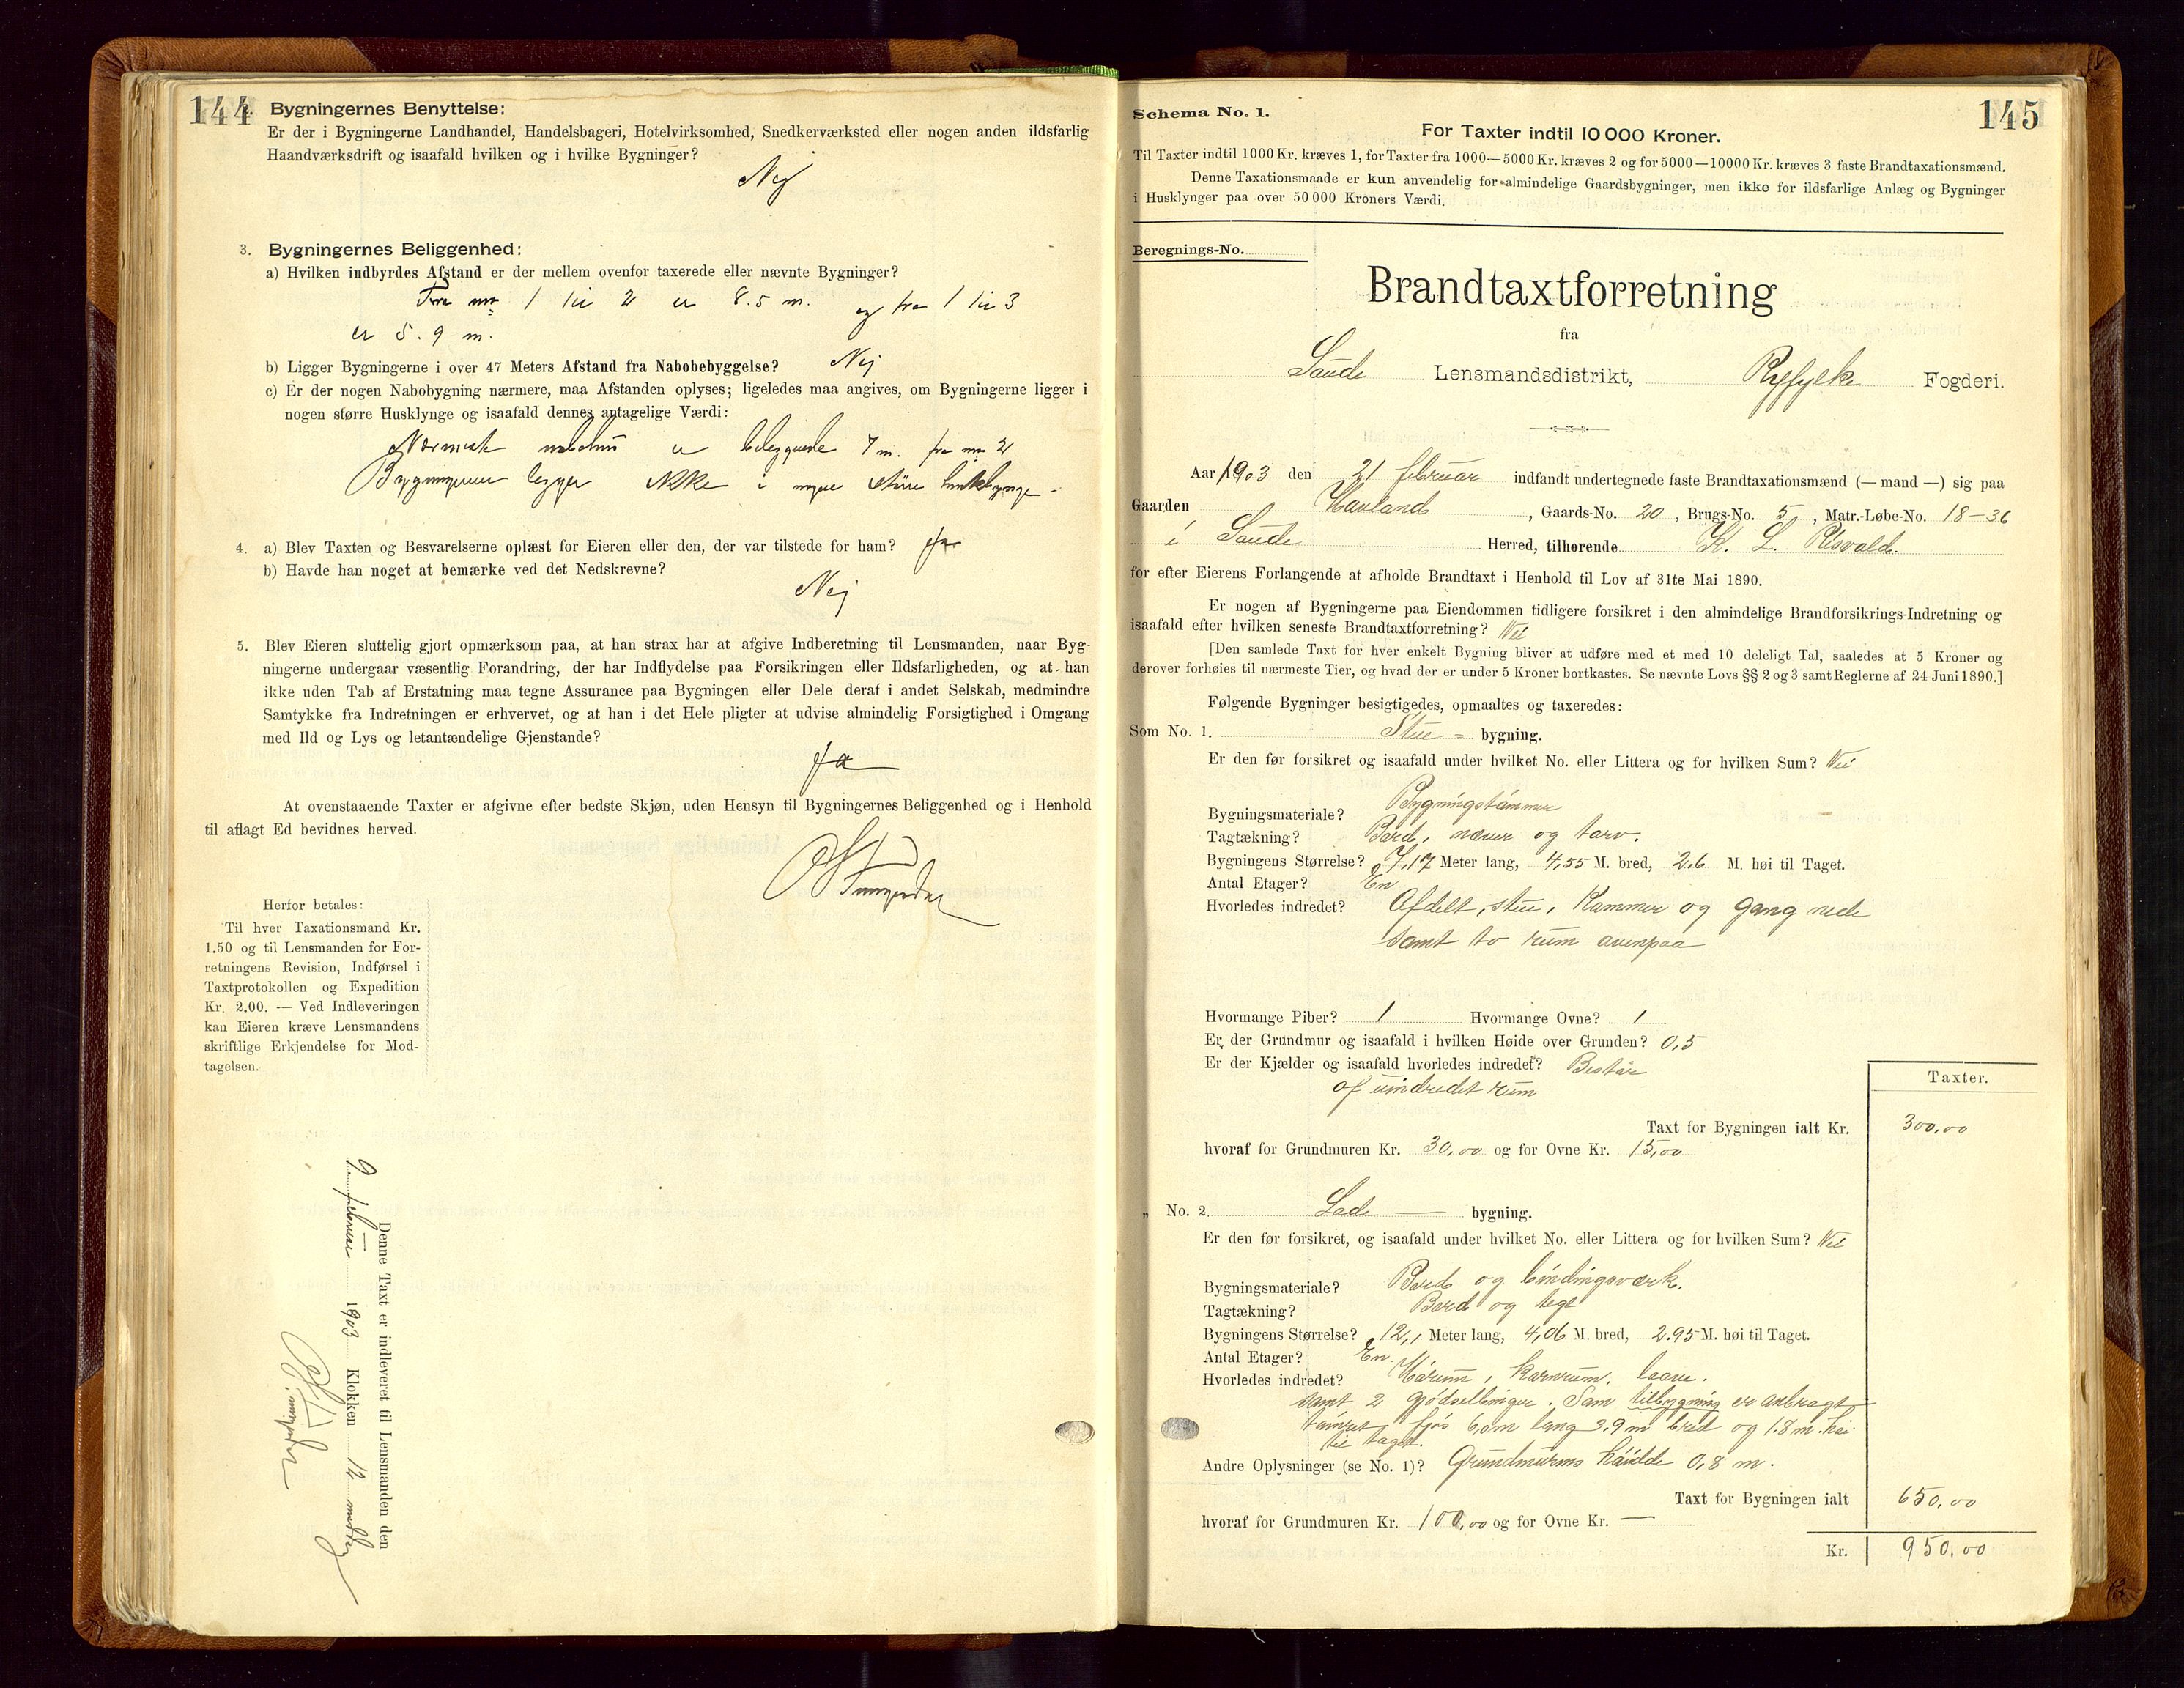 144
2. Bygningernes Benyttelse:
Er der i Bygningerne Landhandel, Handelsbageri, Hotelvirksomhed, Snedkerværksted eller nogen anden ildsfarlig
Haandværksdrift og isaafald hvilken og i hvilke Bygninger?
Nej
3. Bygningernes Beliggenhed:
a) Hvilken indbyrdes Afstand er der mellem ovenfor taxerede eller nævnte Bygninger?
Fra no 1 til 2 er 8.5 m. og fra 1 til 3
er 5.9 m.
b) Ligger Bygningerne i over 47 Meters Afstand fra Nabobebyggelse? Nej
c) Er der nogen Nabobygning nærmere, maa Afstanden oplyses; ligeledes maa angives, om Bygningerne ligger i
nogen større Husklynge og isaafald dennes antagelige Værdi:
Nærmeste nabohus er beliggende 7 m. fra no 2
Bygningerne ligger ikke i nogen større husklynge.
4. a) Blev Taxten og Besvarelserne oplæst for Eieren eller den, der var tilstede for ham? Ja
b) Havde han noget at bemærke ved det Nedskrevne?
Nej
5. Blev Eieren sluttelig gjort opmærksom paa, at han strax har at afgive Indberetning til Lensmanden, naar Byg-
ningerne undergaar væsentlig Forandring, der har Indflydelse paa Forsikringen eller Ildsfarligheden, og at han
ikke uden Tab af Erstatning maa tegne Assurance paa Bygningen eller Dele deraf i andet Selskab, medmindre
Samtykke fra Indretningen er erhvervet, og at han i det Hele pligter at udvise almindelig Forsigtighed i Omgang
med Ild og Lys og letantændelige Gjenstande?
Ja
At ovenstaaende Taxter er afgivne efter bedste Skjøn, uden Hensyn til Bygningernes Beliggenhed og i Henhold
til aflagt Ed bevidnes herved.
Herfor betales:
Til hver Taxationsmand Kr.
1.50 og til Lensmanden for For-
retningens Revision, Indførsel i
Taxtprotokollen og Expedition
Kr. 2.00. — Ved Indleveringen
kan Eieren kræve Lensmandens
skriftlige Erkjendelse for Mod-
tagelsen.
Denne Taxt er indleveret til Lensmanden den
9 februar 1903 Klokken 12 middag
145
Schema No. 1.
For Taxter indtil 10 000 Kroner.
Til Taxter indtil 1000 Kr. kræves 1, for Taxter fra 1000—5000 Kr. kræves 2 og for 5000—10000 Kr. kræves 3 faste Brandtaxationsmænd.
Denne Taxationsmaade er kun anvendelig for almindelige Gaardsbygninger, men ikke for ildsfarlige Anlæg og Bygninger
i Husklynger paa over 50 000 Kroners Værdi.
Beregnings-No.
Brandtaxtforretning
fra
Saude Lensmandsdistrikt, Ryfylke Fogderi.
Aar 1903 den 21 februar indfandt undertegnede faste Brandtaxationsmænd (— mand —) sig paa
Gaarden Havland, Gaards-No. 20, Brugs-No. 5, Matr.-Løbe-No. 18-36
i Saude Herred, tilhørende K. L. Risvold.
for efter Eierens Forlangende at afholde Brandtaxt i Henhold til Lov af 31te Mai 1890.
Er nogen af Bygningerne paa Eiendommen tidligere forsikret i den almindelige Brandforsikrings-Indretning og
isaafald efter hvilken seneste Brandtaxtforretning? Nei
[Den samlede Taxt for hver enkelt Bygning bliver at udføre med et med 10 deleligt Tal, saaledes at 5 Kroner og
derover forhøies til nærmeste Tier, og hvad der er under 5 Kroner bortkastes. Se nævnte Lovs §§ 2 og 3 samt Reglerne af 24 Juni 1890.]
Følgende Bygninger besigtigedes, opmaaltes og taxeredes:
Som No. 1. Stue - bygning.
Er den før forsikret og isaafald under hvilket No. eller Littera og for hvilken Sum? Nei
Bygningsmateriale? Bygningstømmer
Tagtækning? Bord, næver og torv.
Bygningens Størrelse? 7,17 Meter lang, 4,55 M. bred, 2.6 M. høi til Taget.
Antal Etager? En
Hvorledes indredet? Afdelt, stue, Kammer og gang nede
samt to rum ovenpaa
Hvormange Piber? 1 Hvormange Ovne? 1
Er der Grundmur og isaafald i hvilken Høide over Grunden? 0,5
Er der Kjælder og isaafald hvorledes indredet? Består
af uindredet rum
Taxter.
Taxt for Bygningen ialt Kr. 300,00
hvoraf for Grundmuren Kr. 30,00 og for Ovne Kr. 15,00
„ No. 2. Lade — bygning.
Er den før forsikret, og isaafald under hvilket No. eller Littera og for hvilken Sum? Nei
Bygningsmateriale? Bord og bindingsværk.
Tagtækning? Bord og tegl
Bygningens Størrelse? 12,1 Meter lang, 4,06 M. bred, 2.95 M. høi til Taget.
Antal Etager? En.
Hvorledes indredet? Hørum, kornrum, laave.
samt 2 gjødselbinger. Som tilbygning er anbragt
tømret fjøs 6,0m lang 3.9 m bred og 1.8 m. høi
til taget.
Andre Oplysninger (se No. 1)? Grundmurens høidde 0,8 m.
Taxt for Bygningen ialt 650,00
hvoraf for Grundmuren Kr. 100,00 og for Ovne Kr. —
Kr. 950,00